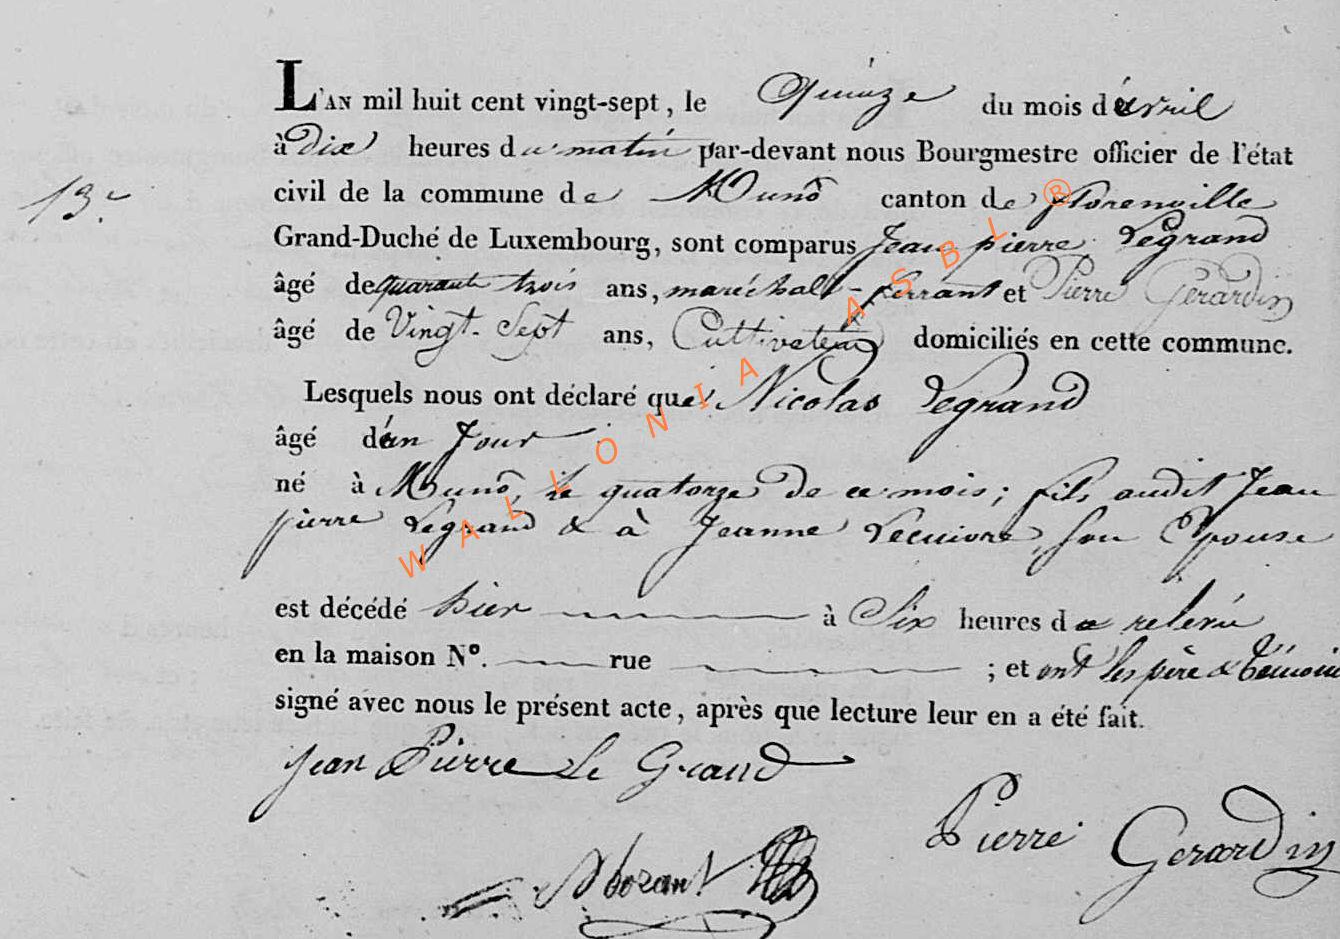 L'AN mil huit cent vingt-sept, le Quinze du mois d'avril
à dix heures du matin par-devant nous Bourgmestre officier de l'état
civil de la commune de Muno canton de florenville
13.e
Grand-Duché de Luxembourg, sont comparus Jean pierre Legrand
âgé de quarante trois ans, maréchalt-ferrant et Pierre Gerardin
âgé de Vingt-Sept ans, Cultivateur domiciliés en cette commune.
Lesquels nous ont déclaré que Nicolas Legrand
âgé d'un Jour
né à Muno, le quatorze de ce mois; fils audit Jean
pierre Legrand & à Jeanne Lecuivre, son Epouse
est décédé hier à Six heures de relevée
en la maison N°. rue ; et ont les père & témoin
signé avec nous le présent acte, après que lecture leur en a été fait.
Jean Pierre Le Grand
Pierre Gerardin
WALLONIA ASBL ®